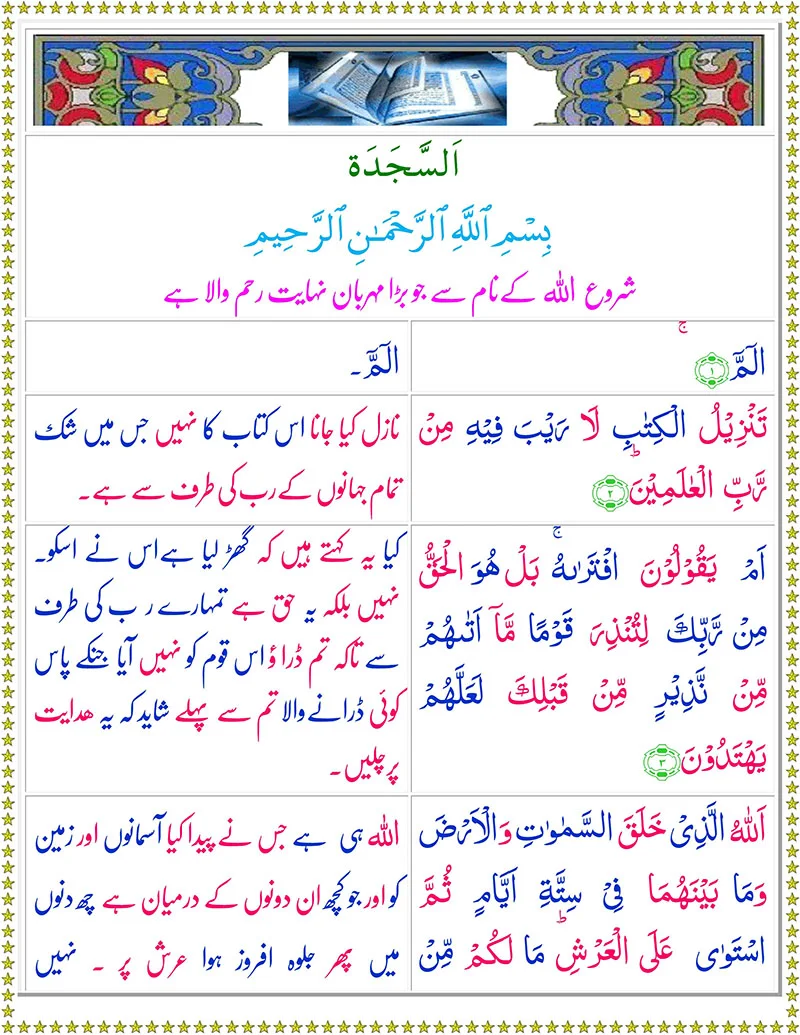 اَلسَّجَدَة
بِسْمِ ٱللَّهِ ٱلرَّحْمَـٰنِ ٱلرَّحِيمِ
شروع اللہ کے نام سے جو بڑا مہربان نہایت رحم والا ہے
الٓمّٓ ۚ‏﴿۱﴾
الٓمّٓ۔
تَنْزِيْلُ الْكِتٰبِ لَا رَيْبَ فِيْهِ مِنْ
رَّبِّ الْعٰلَمِيْنَؕ‏﴿۲﴾
نازل کیا جانا اس کتاب کا نہیں جس میں شک
تمام جہانوں کے رب کی طرف سے ہے۔
اَمْ يَقُوْلُوْنَ افْتَرٰىهُ‌ۚ بَلْ هُوَ الْحَقُّ
مِنْ رَّبِّكَ لِتُنْذِرَ قَوْمًا مَّاۤ اَتٰٮهُمْ
مِّنْ نَّذِيْرٍ مِّنْ قَبْلِكَ لَعَلَّهُمْ
يَهْتَدُوْنَ‏﴿۳﴾
کیا یہ کہتے ہیں کہ گھڑ لیا ہےاس نے اسکو۔
نہیں بلکہ یہ حق ہے تمہارے ر ب کی طرف
سے تاکہ تم ڈرا ؤ اس قوم کو نہیں آیا جنکے پاس
کوئی ڈرانے والا تم سے پہلے شاید کہ یہ ھدایت
پر چلیں۔
اَللّٰهُ الَّذِىْ خَلَقَ السَّمٰوٰتِ وَالْاَرْضَ
وَمَا بَيْنَهُمَا فِىْ سِتَّةِ اَيَّامٍ ثُمَّ
اسْتَوٰى عَلَى الْعَرْشِ‌ؕ مَا لَكُمْ مِّنْ
اللہ ہی ہے جس نے پیدا کیا آسمانوں اور زمین
کو اور جو کچھ ان دونوں کے درمیان ہے چھ دنوں
میں پھر جلوہ افروز ہوا عرش پر ۔ نہیں